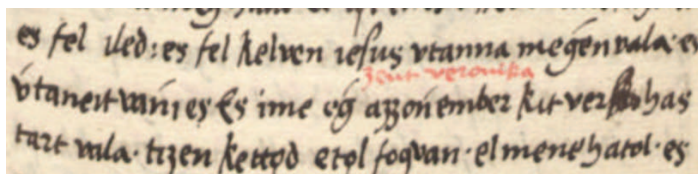 es fel iled: es fel kelven iesus vtanna megen vala· es
zent veronika
vtaneit vani es Es ime eg azzońember kit ver has
tart vala· tizen kettod etol foǵvan· el mene hatol· es